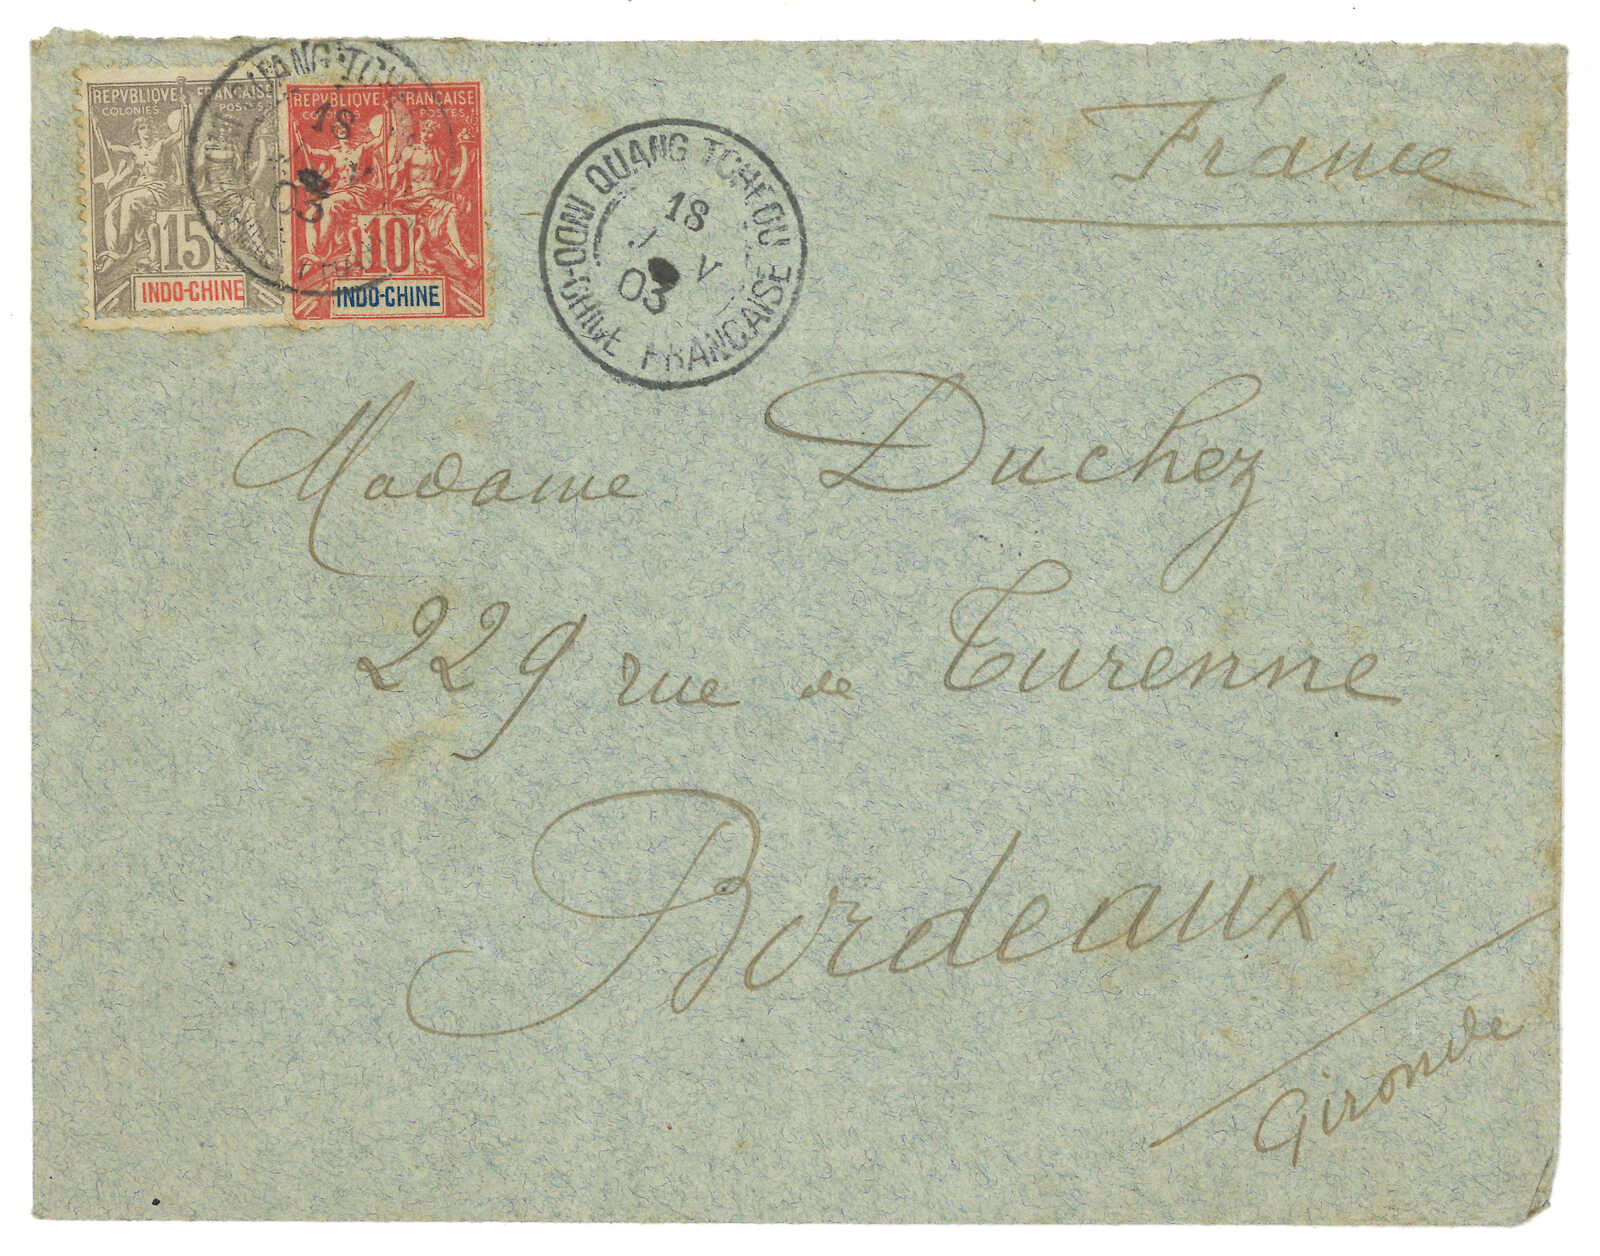 REPVBLIQVE FRANÇAISE
COLONIES POSTES
15
INDO-CHINE
REPVBLIQVE FRANÇAISE
POSTES
10
INDO-CHINE
18
03
QUANG TCHEOU
18
V
03
INDO-CHINE FRANCAISE
France
Madame Duchez
229 rue de Turenne
Bordeaux
Gironde